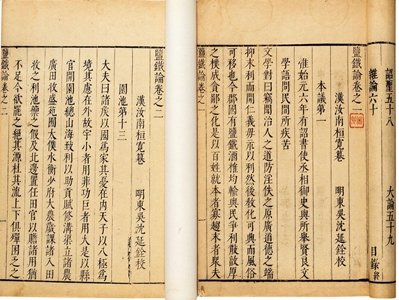 詔聖五十八 大論五十九
雜論六十 目錄終
鹽鐵論卷之一
漢汝南桓寬著 明東吳沈延銓校
本議第一
惟始元六年有詔書使丞相御史與所舉賢良文
學語問民間所疾苦
文學對曰竊聞治人之道防淫佚之原廣道德之端
抑末利而開仁義毋示以利然後教化可興而風俗
可移也今郡國有鹽鐵酒榷均輸與民爭利散敦厚
之樸成貪鄙之化是以百姓就本者寡趨末者衆夫
鹽鐵論卷之一
鹽鐵論卷之二
漢汝南桓寬著 明東吳沈延銓校
園池第十三
大夫曰諸侯以國爲家其憂在內天子以八極爲
境其慮在外故宇小者用菲功巨者用大是以縣
官開園池總山海致利以助貢賦修溝渠立諸農
廣田牧盛苑囿太僕水衡少府大農歲課諸入田
牧之利池籞之假及北邊置任田官以贍諸用猶
不足今欲罷之絕其源杜其流上下俱殫困乏之
鹽鐵論卷之二